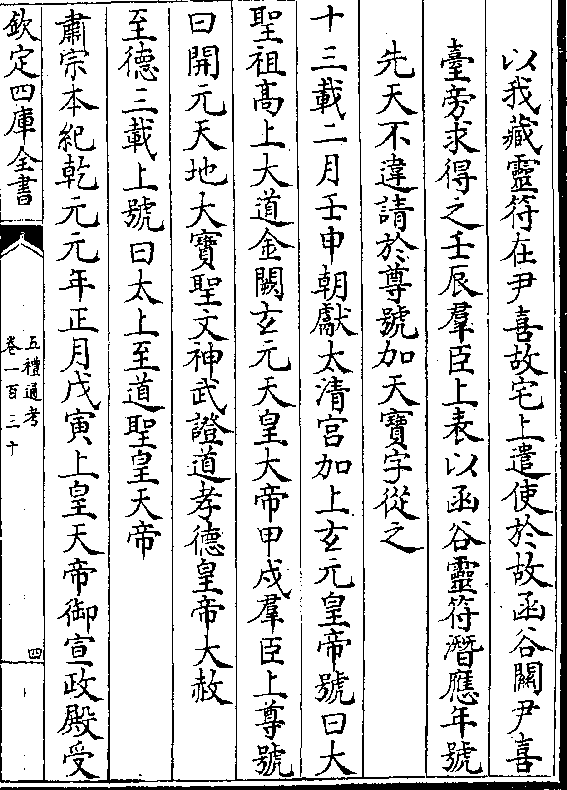 以我藏靈符在尹喜故宅上遣使於故函谷關尹喜
臺旁求得之壬辰羣臣上表以函谷靈符潛應年號
先天不違請於尊號加天寶字從之
十三載二月壬申朝獻太清宮加上玄元皇帝號曰大
聖祖髙上大道金闕玄元天皇大帝甲戌羣臣上尊號
曰開元天地大寶聖文神武證道孝德皇帝大赦
至德三載上號曰太上至道聖皇天帝
肅宗本紀乾元元年正月戊寅上皇天帝御宣政殿受
欽定四庫全書
五禮通考
卷一百三十
四